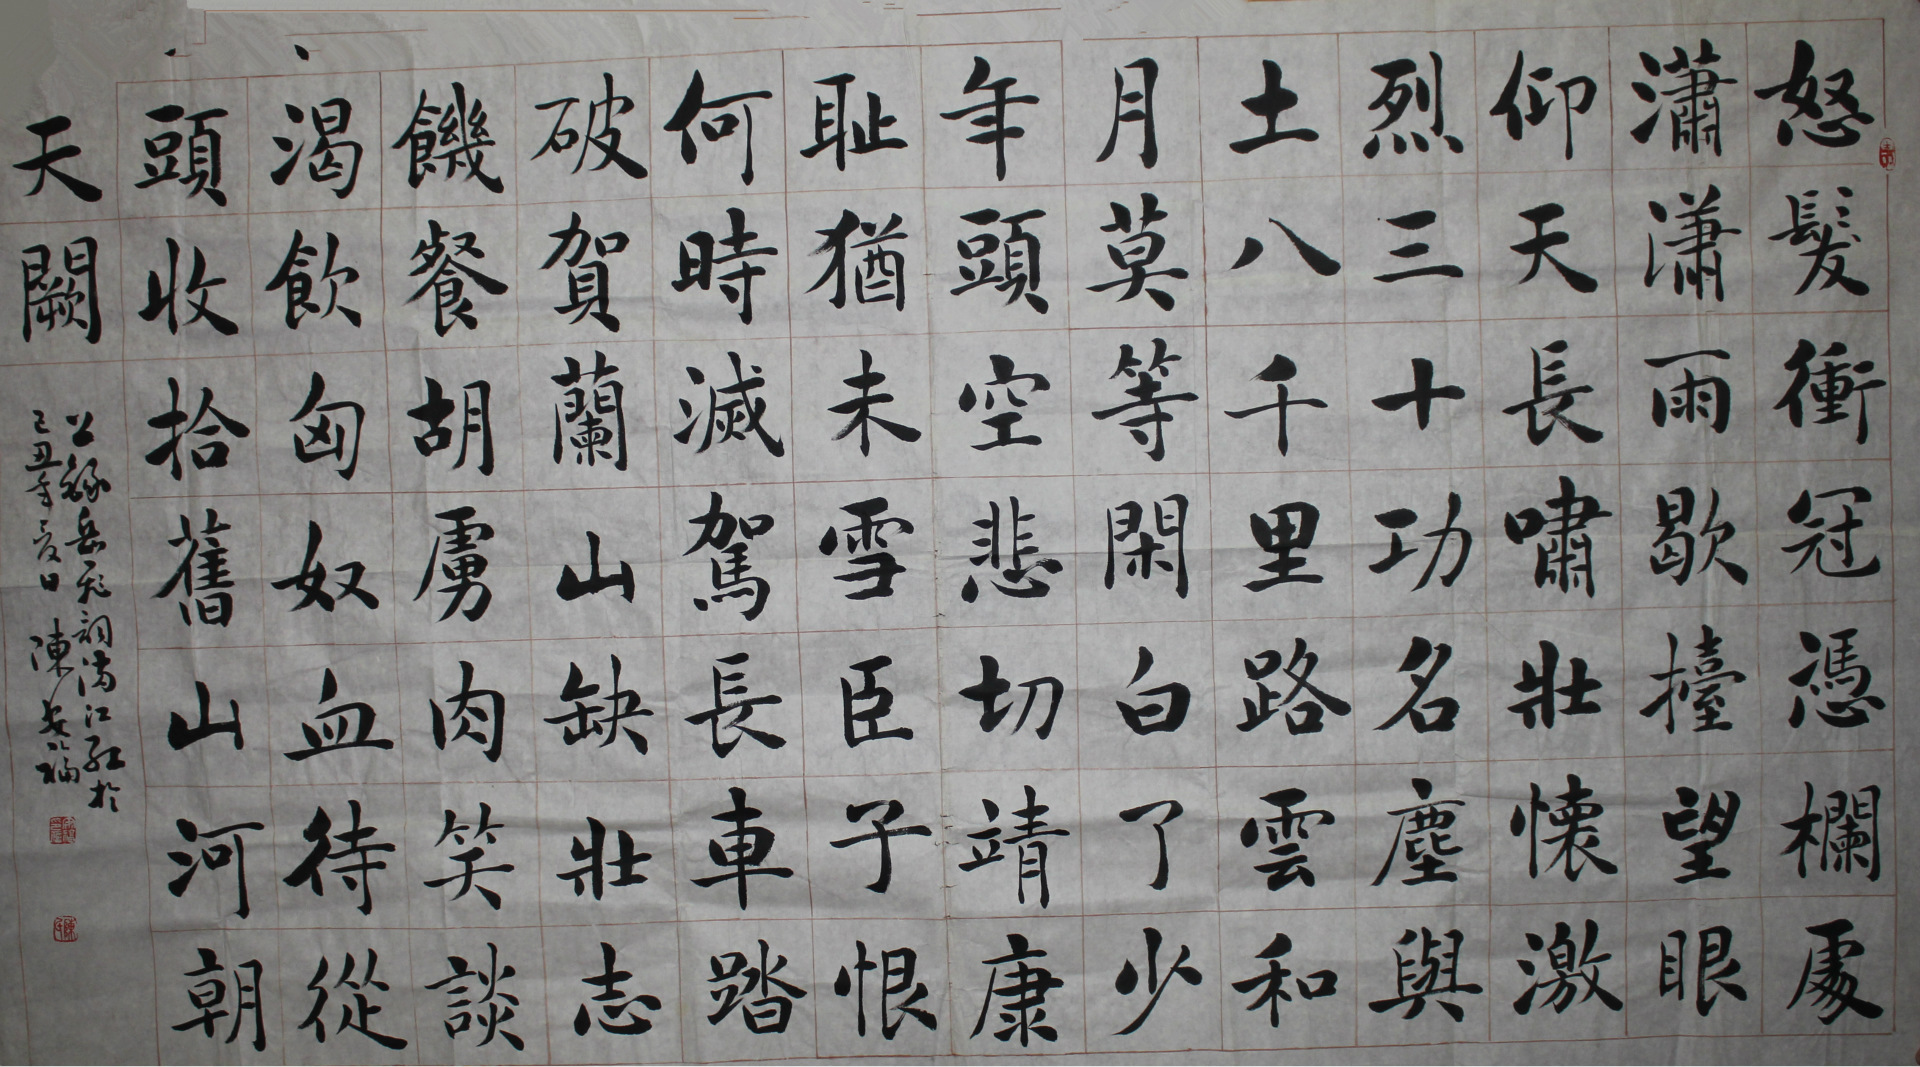 怒髮衝冠憑欄處
瀟瀟雨歇擡望眼
仰天長嘯壯懷激
烈三十功名塵與
土八千里路雲和
月莫等閑白了少
年頭空悲切靖康
耻猶未雪臣子恨
何時滅駕長車踏
破賀蘭山缺壯志
饑餐胡虜肉笑談
渴飲匈奴血待從
頭收拾舊山河朝
天闕
錄岳飛詞滿江紅於
己丑年夏日 陳福